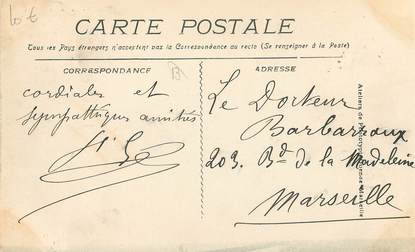 CARTE POSTALE
Tous les Pays étrangers n'acceptent pas la Correspondance au recto (Se renseigner à la Poste)
CORRESPONDANCE
cordiales et
sympathiques amitiés
ADRESSE
Le Docteur
Barbarroux
203. Bd de la Madeleine
Marseille
Ateliers de Phototypie